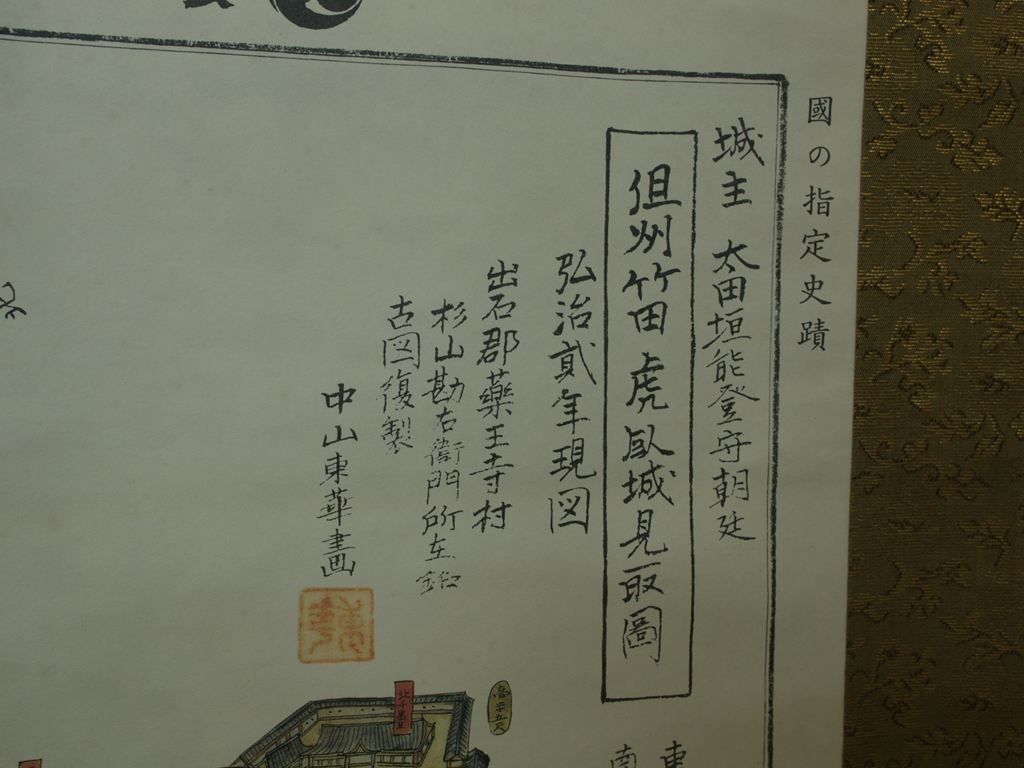 國の指定史蹟
城主 太田垣能登守朝廷
但州竹田虎臥城見取圖
弘治貳年現図
出石郡藥王寺村
杉山勘右衛門所在
古図復製
中山東華畫
東
南